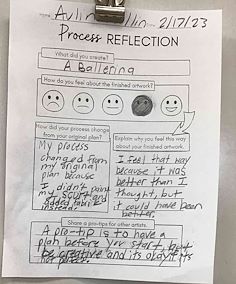 2/17/23
Process REFLECTION
What did you create?
A Ballerina
How do you feel about the finished artwork?
How did your process change
from your original plan?
My process
changed from
my original
plan because
I didn't paint
my
added fabric
instead.
Explain why you feel this way
about your finished artwork.
I feel that way
because it was
better than I
thought, but
it could have been
better.
Share a pro-tips for other artists.
A pro-tip is to have a
plan before you start, but
be creative and its okay if its
not